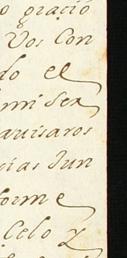 o graciõ
Vos Con
do el
imi ser
auisaros
cias Jun
forme
Celo y